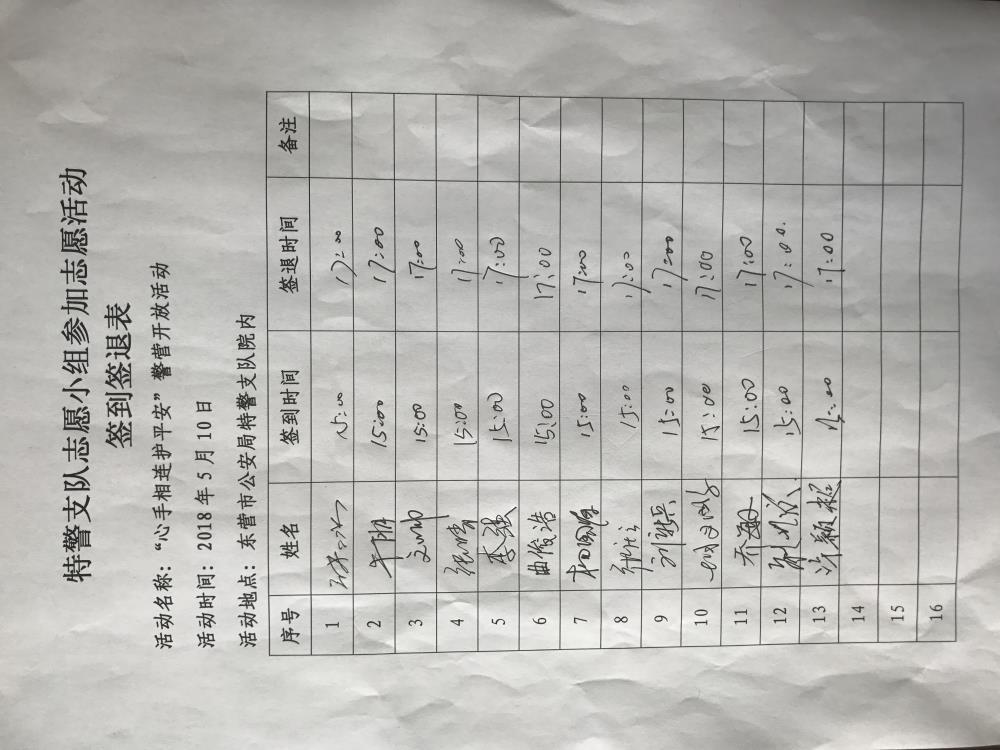 特警支队志愿小组参加志愿活动
签到签退表
活动名称：“心手相连护平安”警营开放活动
活动时间：2018年5月10日
活动地点：东营市公安局特警支队院内
序号 姓名 签到时间 签退时间 备注
1 15:00 17:00
2 15:00 17:00
3 15:00 17:00
4 15:00 17:00
5 李强 15:00 17:00
6 曲俊浩 15:00 17:00
7 15:00 17:00
8 15:00 17:00
9 15:00 17:00
10 15:00 17:00
11 乔 15:00 17:00
12 15:00 17:00
13 许颖超 15:00 17:00
14
15
16